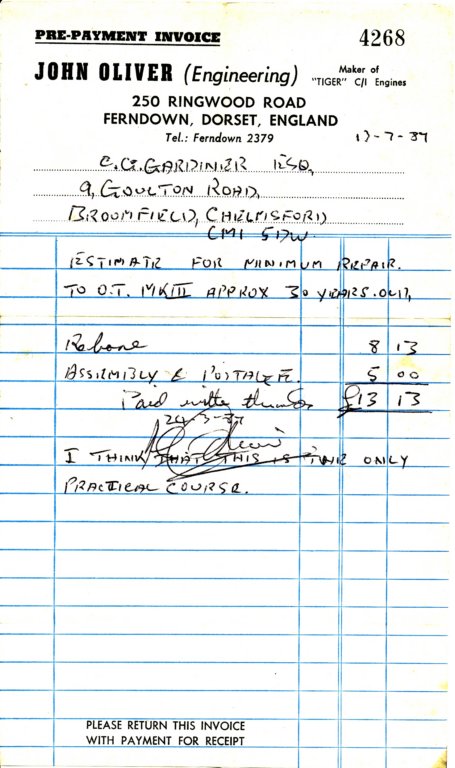 PRE-PAYMENT INVOICE
4268
JOHN OLIVER (Engineering)
Maker of
"TIGER" C/I Engines
250 RINGWOOD ROAD
FERNDOWN, DORSET, ENGLAND
Tel.: Ferndown 2379
17-7-87
E.G. GARDINIER ESQ,
9, GOULTON ROAD,
BROOMFIELD, CHELMSFORD
CM1 5DW.
ESTIMATE FOR MINIMUM REPAIR.
TO O.T. MKIII APPROX 30 YEARS.OLD,
Rebore 8 13
ASSEMBLY & POSTAGE. 5 00
Paid with thanks £13 13
I THINK THAT THIS IS THE ONLY
PRACTICAL COURSE.
PLEASE RETURN THIS INVOICE
WITH PAYMENT FOR RECEIPT